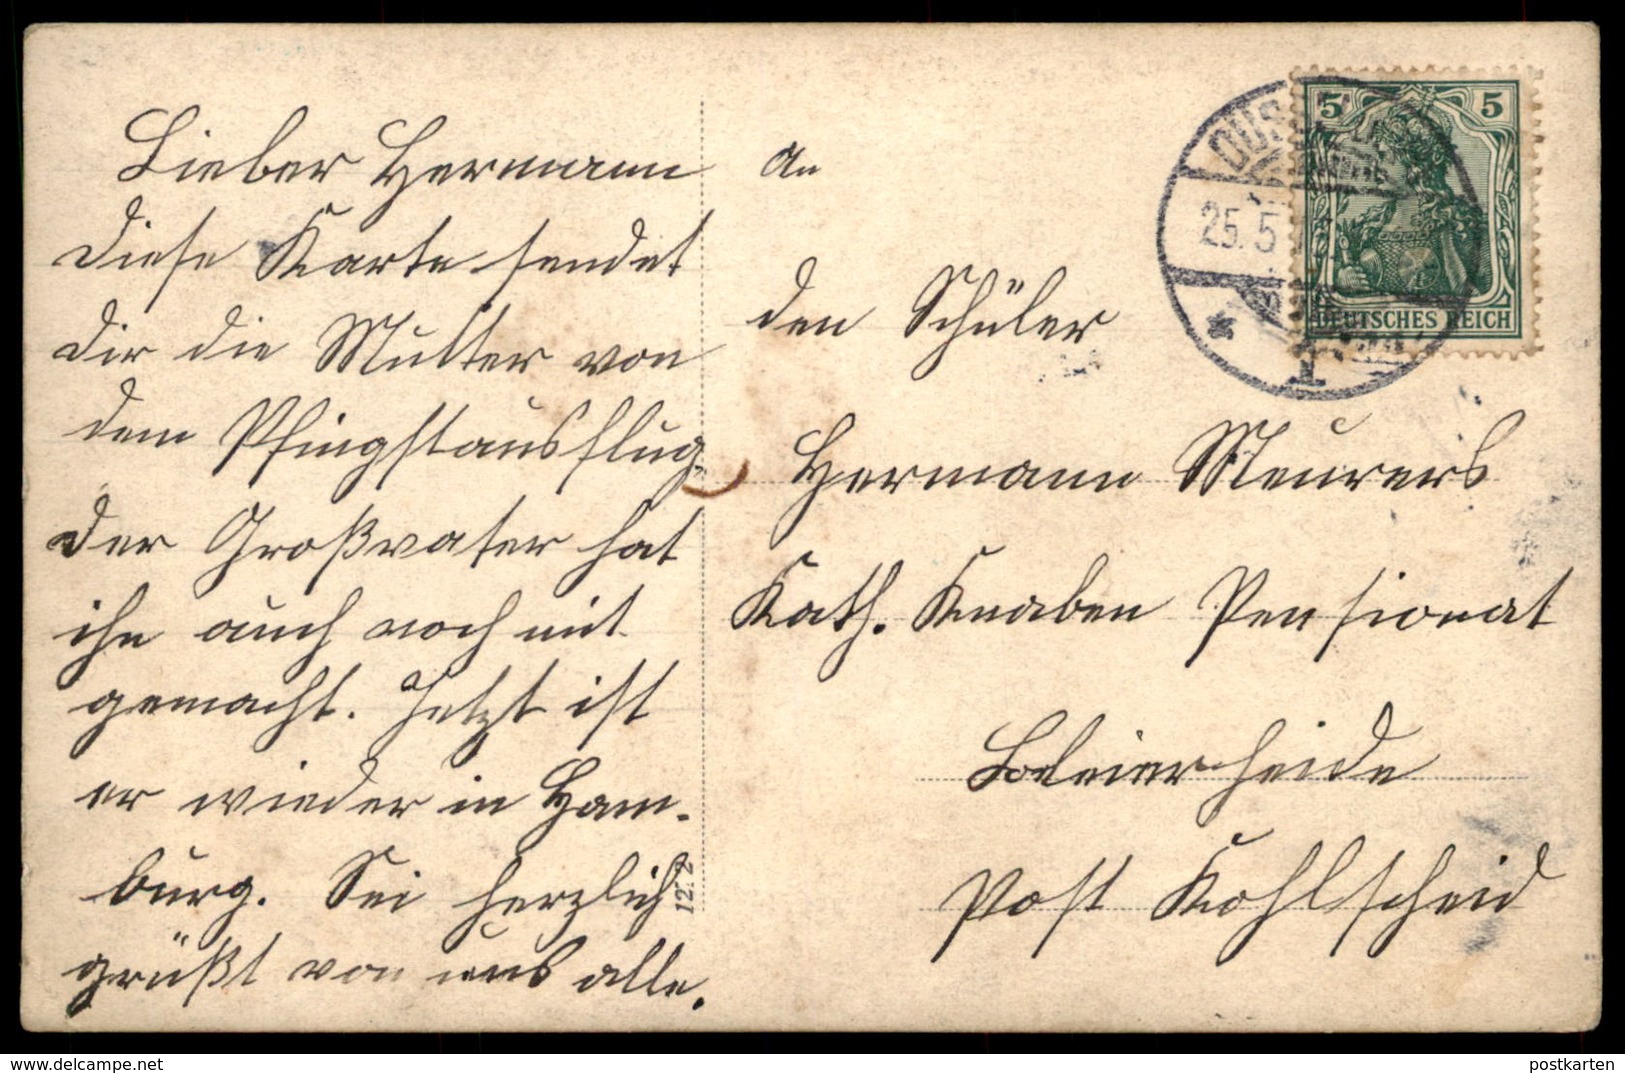 Lieber Hermann
Diese Karte sendet
Dir die Mutter von
dem Pfingstausflug.
Der Großvater hat
ihn auch noch mit
gemacht. Jetzt ist
er wieder in Ham-
burg. Sei herzlich
grüßt von uns alle.
12. 2
An
den Schüler
Hermann Meurers
Kath. Knaben Pensionat
Bleierheide
Post Kohlscheid
25. 5
* 1
5 5
DEUTSCHES REICH
delcampe.net
postkarten